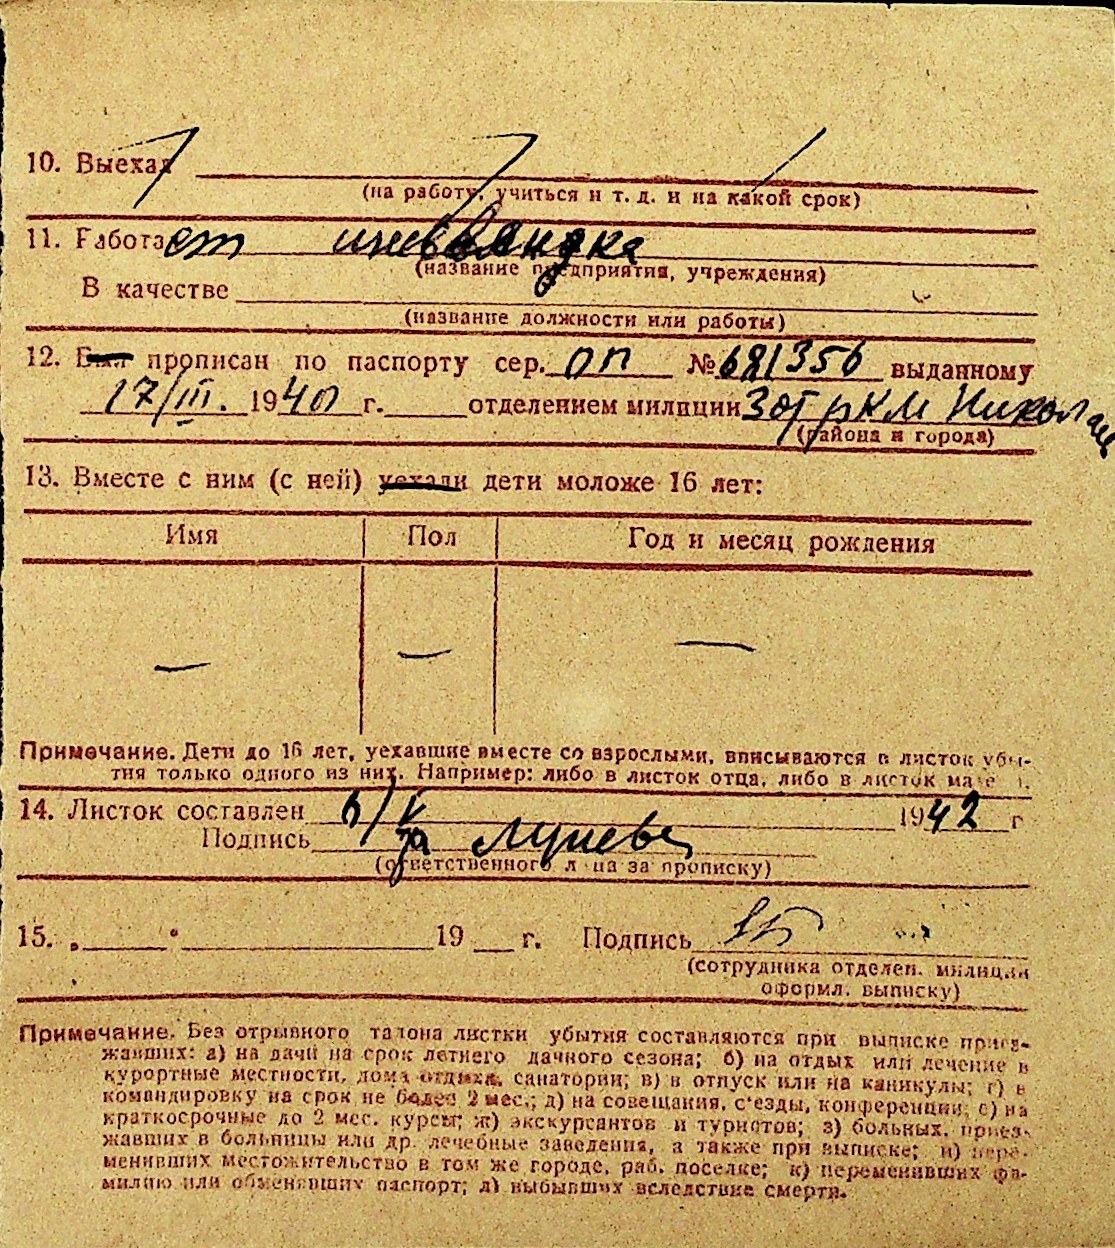 10. Выехал
(на работу, учиться и т. д. и на какой срок)
11. Работает иждивенка
(название предприятия, учреждения)
В качестве
(название должности или работы)
12. Был прописан по паспорту сер. ОП № 681356 выданному
17/III. 1940 г. отделением милиции 3 от РКМ Николаев
(района и города)
13. Вместе с ним (с ней) уехали дети моложе 16 лет:
Имя Пол Год и месяц рождения
— — —
Примечание. Дети до 16 лет, уехавшие вместе со взрослыми, вписываются в листок убы-
тия только одного из них. Например: либо в листок отца, либо в листок
14. Листок составлен 6/V 1942 г
Подпись
(ответственного лица за прописку)
15. „ " 19 г. Подпись
(сотрудника отделен. милиции
оформл. выписку)
Примечание. Без отрывного талона листки убытия составляются при выписке приез-
жавших: а) на дачи на срок летнего дачного сезона; б) на отдых или лечение в
курортные местности, дома отдыха, санатории; в) в отпуск или на каникулы; г) в
командировку на срок не более 2 мес.; д) на совещания, с'езды, конференции; е) на
краткосрочные до 2 мес. курсы; ж) экскурсантов и туристов; з) больных, приез-
жавших в больницы или др. лечебные заведения, а также при выписке; и) пере-
менивших местожительство в том же городе, раб. поселке; к) переменивших фа-
милию или обменявших паспорт; л) выбывших вследствие смерти.